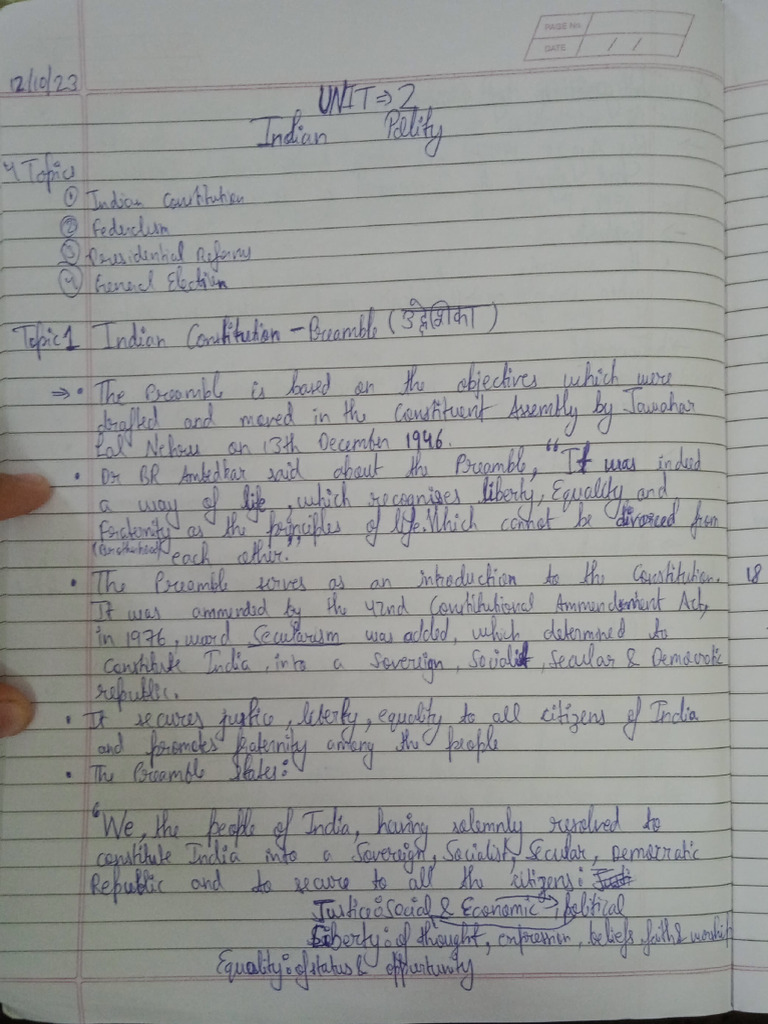 PAGE No.
DATE / /
12/10/23
UNIT ⇒ 2
Indian Polity
4 Topics
① Indian Constitution
② Federalism
③ Presidential Reforms
④ General Election
Topic 1 Indian Constitution - Preamble (उद्देशिका)
⇒ • The Preamble is based on the objectives which were
drafted and moved in the Constituent Assembly by Jawahar
Lal Nehru on 13th December 1946.
• Dr BR Ambedkar said about the Preamble, "It was indeed
a way of life, which recognises liberty, Equality, and
fraternity as the principles of life. Which cannot be divorced from
(Brotherhood) each other."
• The Preamble serves as an introduction to the Constitution. 18
It was ammended by the 42nd Constitutional Ammendment Act,
in 1976, word Secularism was added, which determined to
constitute India, into a Sovereign, Socialist, Secular & Democratic
republic.
• It secures justice, liberty, equality to all citizens of India
and promotes fraternity among the people
• The Preamble states:
"We, the people of India, having solemnly resolved to
constitute India into a Sovereign, Socialist, Secular, Democratic
Republic and to secure to all the citizens:
Justice: Social & Economic, political
Liberty: of thought, expression, beliefs, faith & worship
Equality: of status & oppurtunity